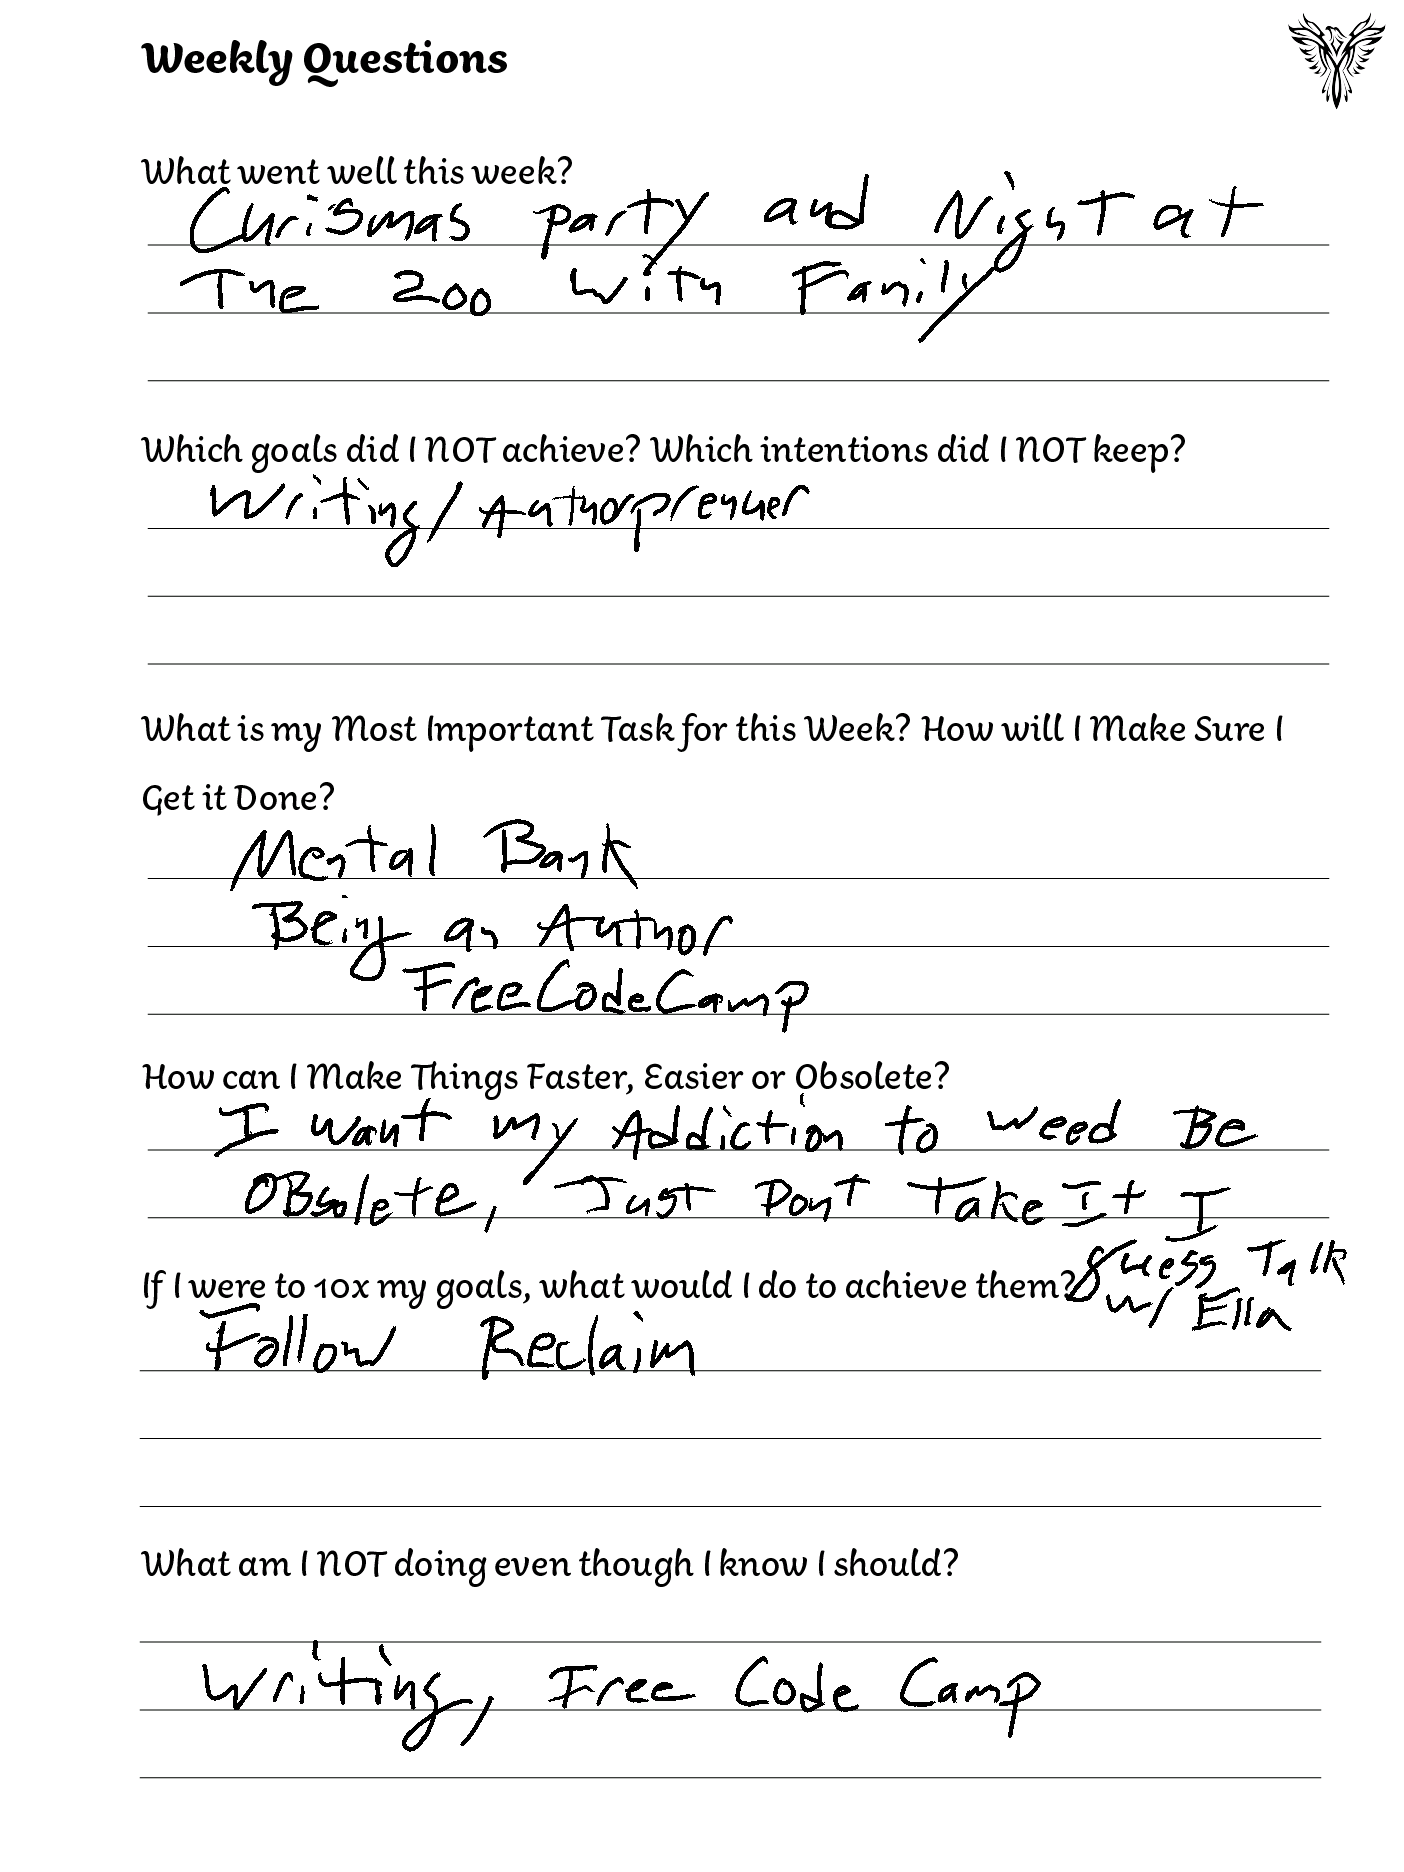 Weekly Questions
What went well this week?
Chrismas party and Night at
The zoo with Family
Which goals did I NOT achieve? Which intentions did I NOT keep?
Writing/Authorprenuer
What is my Most Important Task for this Week? How will I Make Sure I
Get it Done?
Mental Bank
Being an Author
FreeCodeCamp
How can I Make Things Faster, Easier or Obsolete?
I want my Addiction to weed Be
OBsolete, Just Dont Take It I
guess Talk
w/ Ella
If I were to 10x my goals, what would I do to achieve them?
Follow Reclaim
What am I NOT doing even though I know I should?
Writing, Free Code Camp